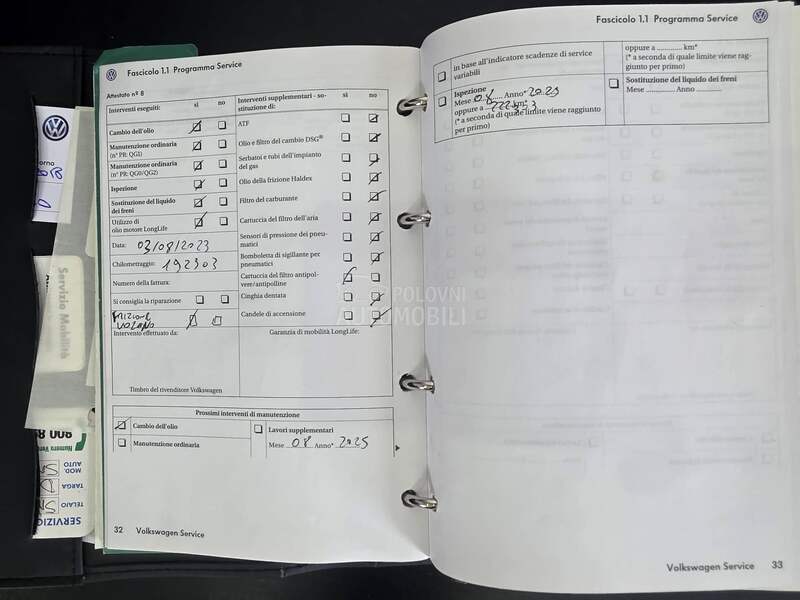 Fascicolo 1.1 Programma Service
Attestato nº 8
Interventi eseguiti: sì no
Cambio dell'olio
Manutenzione ordinaria
(nº PR: QG1)
Manutenzione ordinaria
(nº PR: QG0/QG2)
Ispezione
Sostituzione del liquido
dei freni
Utilizzo di
olio motore LongLife
Data: 03/08/2023
Chilometraggio: 192303
Numero della fattura:
Si consiglia la riparazione
FRIZIONE
VOLANO
Intervento effettuato da:
Timbro del rivenditore Volkswagen
Interventi supplementari - so-
stituzione di: sì no
ATF
Olio e filtro del cambio DSG®
Serbatoi e tubi dell'impianto
del gas
Olio della frizione Haldex
Filtro del carburante
Cartuccia del filtro dell'aria
Sensori di pressione dei pneu-
matici
Bomboletta di sigillante per
pneumatici
Cartuccia del filtro antipol-
vere/antipolline
Cinghia dentata
Candele di accensione
Garanzia di mobilità LongLife:
Prossimi interventi di manutenzione
Cambio dell'olio
Manutenzione ordinaria
Lavori supplementari
Mese 08 Anno* 2025
32 Volkswagen Service
Fascicolo 1.1 Programma Service
in base all'indicatore scadenze di service
variabili
Ispezione
Mese 08 Anno* 2025
oppure a 222303 km*
(* a seconda di quale limite viene raggiunto
per primo)
oppure a ........... km*
(* a seconda di quale limite viene rag-
giunto per primo)
Sostituzione del liquido dei freni
Mese ........... Anno ...........
Volkswagen Service 33
Servizio Mobilità
800 8
Numero Ver
MOD.
AUTO
TARGA
TELAIO
SERVIZIO
POLOVNI
AUTOMOBILI